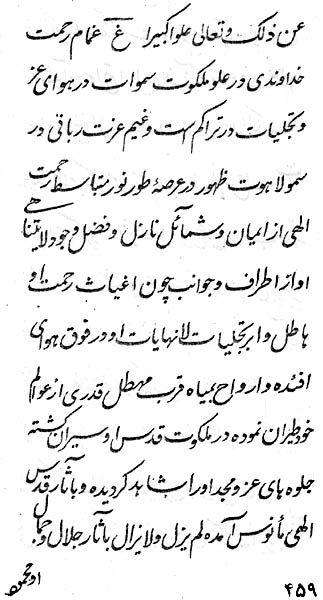 عن ذلک و تعالی علوا کبیرا غ غمام رحمت
خداوندی در علو ملکوت سموات در هوای عز
و تجلیات در تراکم است و غیم عزت ربانی در
سمو لاهوت ظهور در عرصهٔ طور نور متباسط رحمت
الهی از ایمان و شمائل نازل و فضل و جود لایتناهی
او از اطراف و جوانب چون اغیاث رحمت او
هاطل و ابر تجلیات لانهایات او در فوق هوای
افئده و ارواح بمیاه قرب مهطل قدری از عوالم
خود طیران نموده در ملکوت قدس او سیران گشته
جلوه های عز و مجد او را شاهد گردیده و بآثار قدس
الهی مأنوس آمده لم یزل و لایزال بآثار جلال و جمال
او
۴۵۹